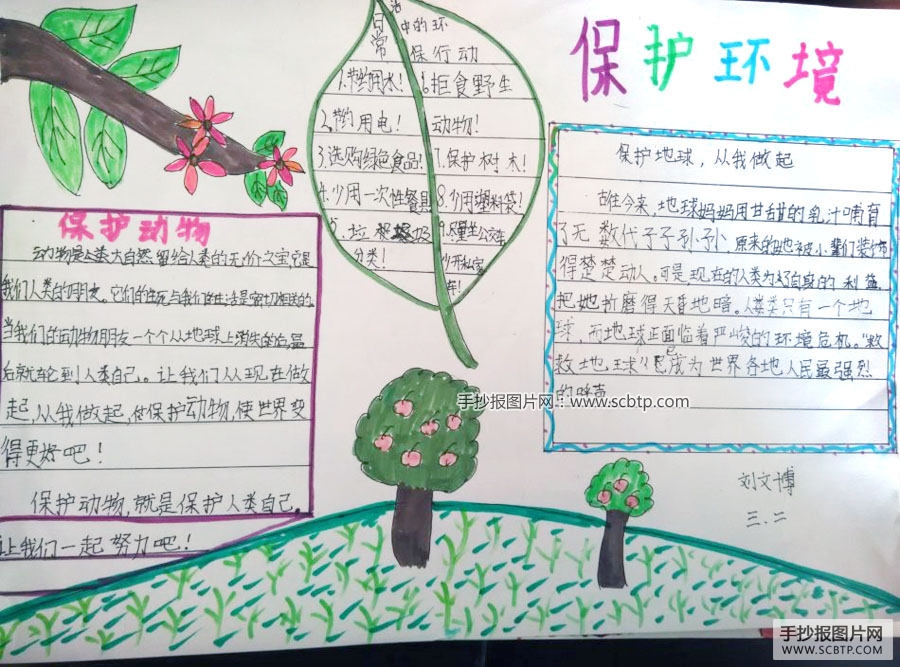 保护环境
日常
活中的环
保行动
1.节约用水！
2.节约用电！
3.选购绿色食品！
4.少用一次性餐具
5.垃圾
分类！
6.拒食野生
动物！
7.保护树木！
8.少用塑料袋！
9.尽量坐公交车
少开私家
车！
保护地球，从我做起
古往今来，地球妈妈用甘甜的乳汁哺育
了无数代子子孙孙，原来的她被小辈们装饰
得楚楚动人。可是，现在的人类为了自身的利益，
把她折磨得天昏地暗。人类只有一个地
球，而地球正面临着严峻的环境危机。"救
救地球"已成为世界各地人民最强烈
的呼声
保护动物
动物是大自然留给人类的无价之宝，它是
我们人类的朋友。它们的生死与我们的生活是密切相关的。
当我们的动物朋友一个个从地球上消失的话，最
后就轮到人类自己。让我们从现在做
起，从我做起，保护动物，使世界变
得更好吧！
保护动物，就是保护人类自己。
让我们一起努力吧！
刘文博
三.二
手抄报图片网：www.scbtp.com
手抄报图片网
WWW.SCBTP.COM